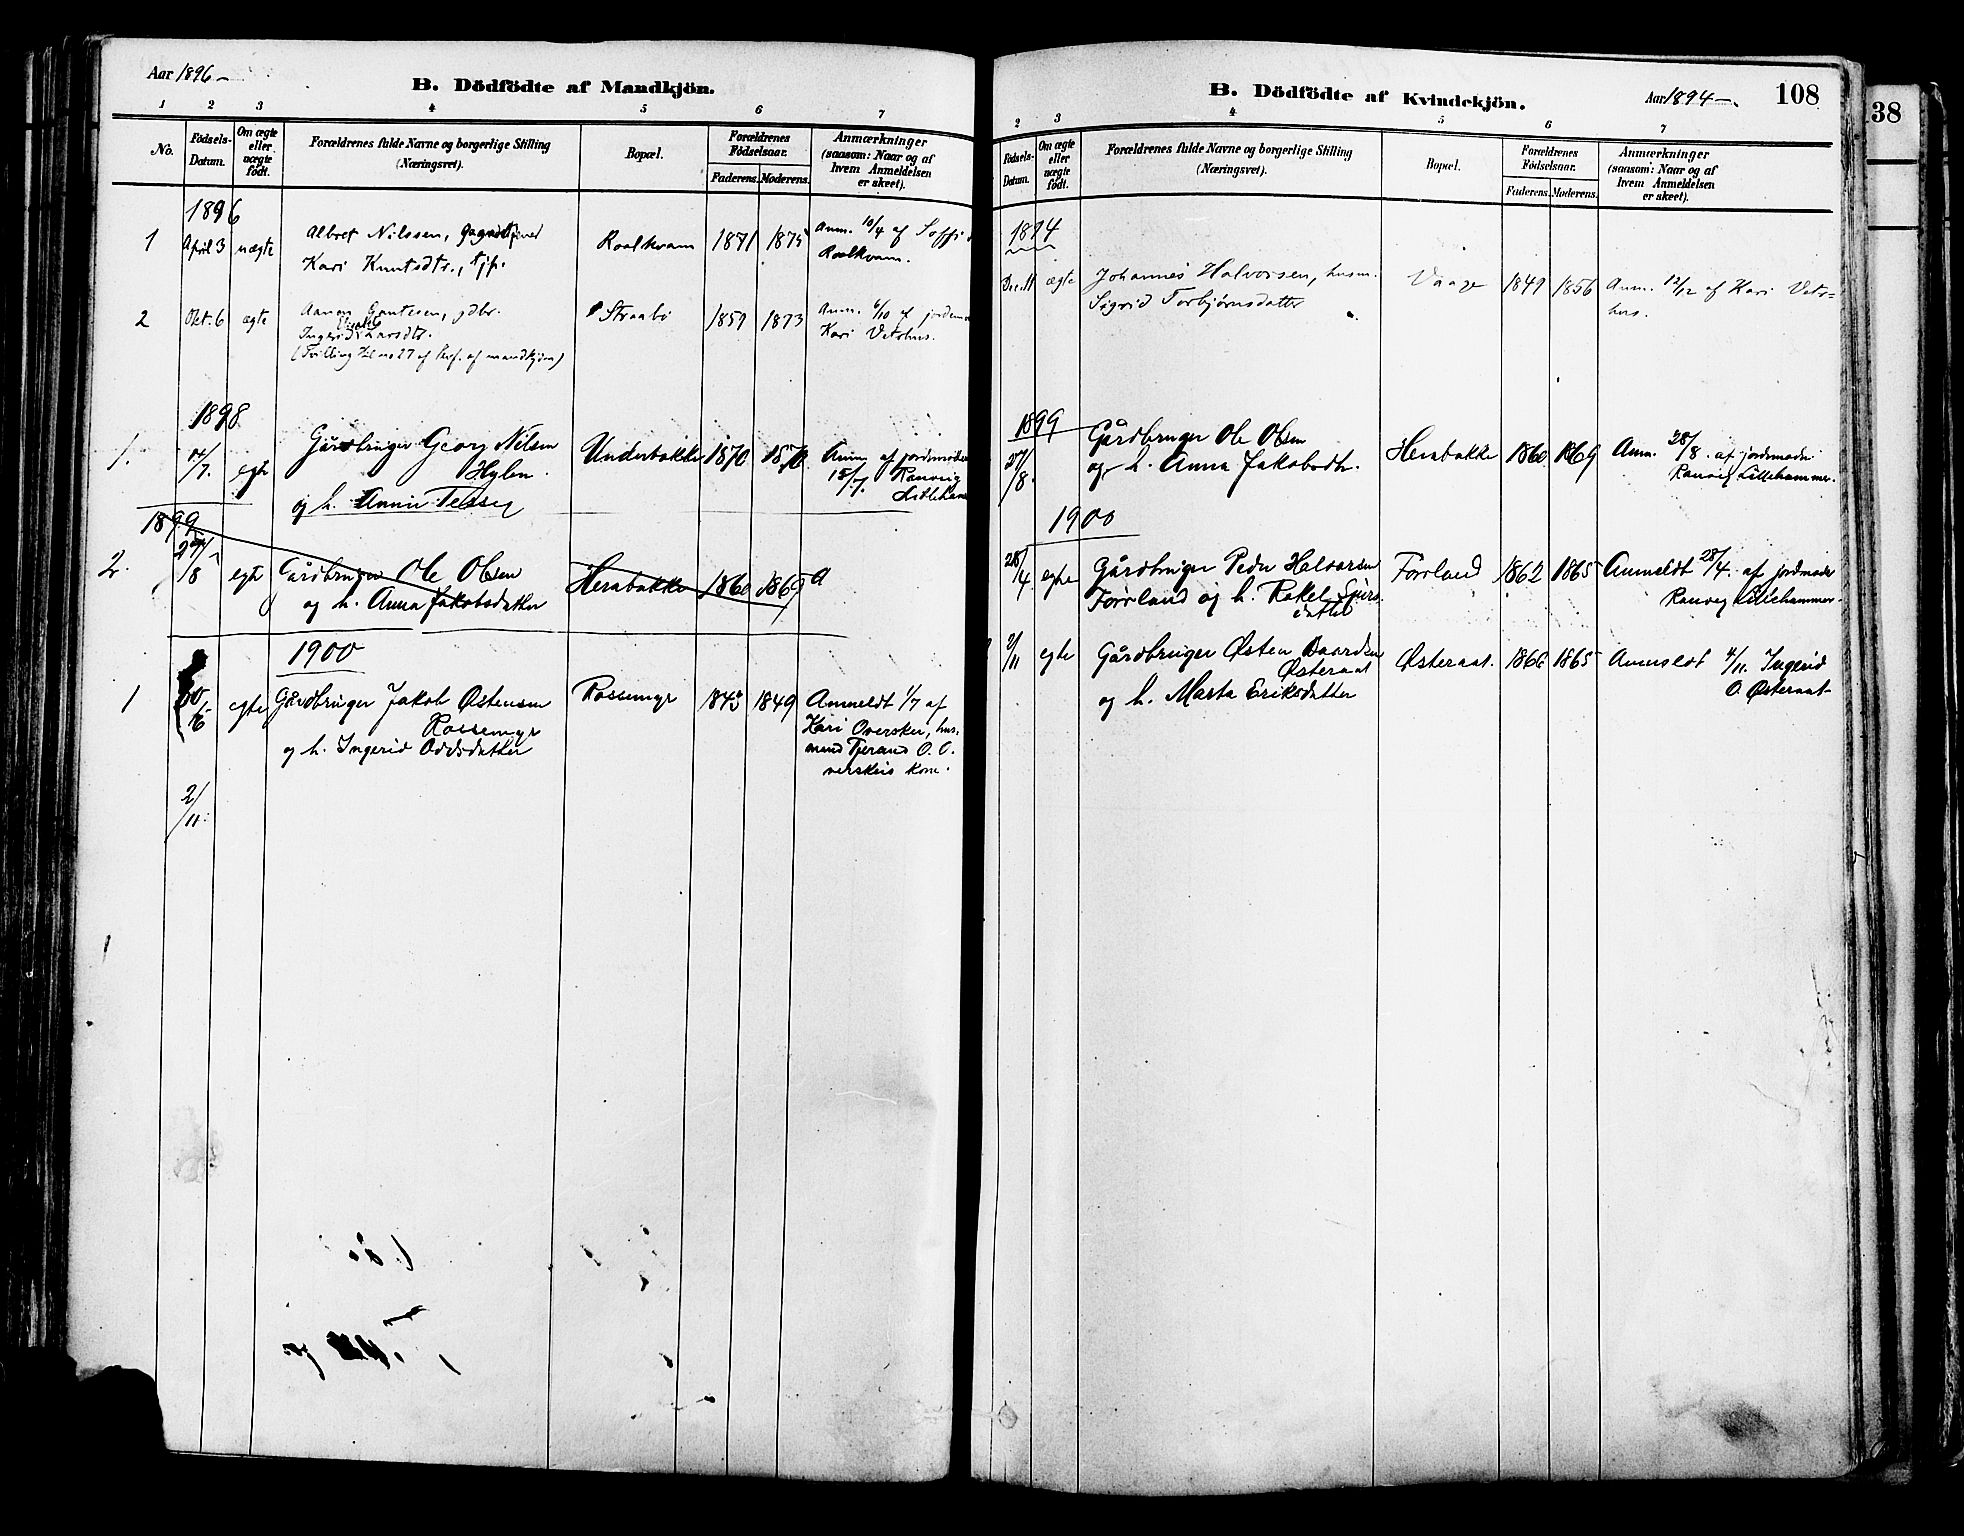 Aar 1896 –
B. Dödfödte af Mandkjön.
1 2 3 4 5 6 7
No.
Födsels-
Datum.
Om ægte
eller
uægte
født.
Forældrenes fulde Navne og borgerlige Stilling
(Næringsvei).
Bopæl.
Forældrenes
Födselsaar.
Faderens. Moderens.
Anmærkninger
(saasom: Naar og af
hvem Anmeldelsen
er skeet).
1896
1 April 3 uægte Albret Nilssen, Roalkvam 1871 1875 Anm. 10/4 af
Kari Knutsdtr., tjp. Roalkvam.
2 Okt. 6 ægte Aanon Gautesen, gdbr. Straabø 1859 1873 Anm. 6/10 af jordemo
Elisabet
Inger Kari Vetrhus.
(Tvilling til no 27 af mandkjøn)
1898
1. 14/7. egte Gårdbruger Georg Nilsen Underbakke 1870 1870 Anm. af jordmoder
Hylen 15/7. Ranveig
og h. Anna Lilleham
1899
2. 27/8 egte Gårdbruger Ole Olsen Herabakke 1860 1869 A
og h. Anna Jakobsdatter
1900
1 30/6 egte Gårdbruger Jakob Østensen Rossemyr 1843 1849 Anmeldt 1/7 af
Rossemyr Kari Oversker, hus-
og h. Ingerid Oddsdatter mand Tjerand O. O.
verskeis kone.
2/11.
B. Dödfödte af Kvindekjön.
Aar 1894 –
108
2 3 4 5 6 7
Födsels-
Datum.
Om ægte
eller
uægte
født.
Forældrenes fulde Navne og borgerlige Stilling
(Næringsvei).
Bopæl.
Forældrenes
Födselsaar.
Faderens. Moderens.
Anmærkninger
(saasom: Naar og af
hvem Anmeldelsen
er skeet).
1894
Dec. 11 ægte Johannes Halvorsen, husm. Vaage 1849 1856 Anm. 12/12 af Kari Vetr=
Sigrid Torbjørnsdatter hus.
1899
27/8 Gårdbruger Ole Olsen Herabakke 1860 1869 Anm. 28/8. af jordmoder
og h. Anna Jakobsdtr. Ranveig Lillehammer.
1900
28/4. egte Gårdbruger Peder Halvorsen Førrland 1862 1865 Anmeldt 28/4. af jordmoder
Førrland og h. Rakel Sjurs Ranveig Lillehammer.
datter
2/11 egte Gårdbruger Østen Baardsen Østeraat. 1866 1865 Anmeldt 4/11. Ingerid
Østeraat O. Østeraat
og h. Marta Eriksdatter
38